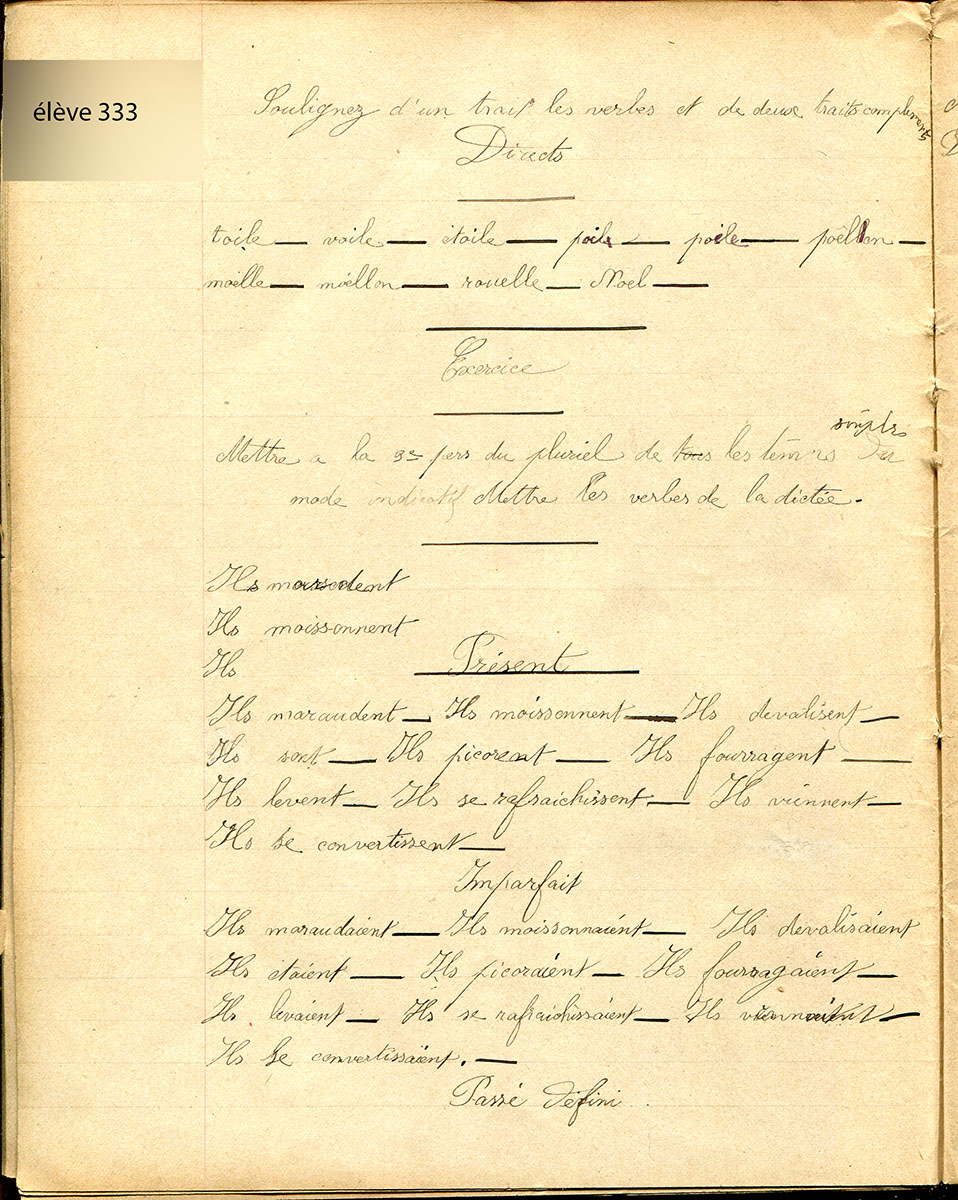 élève 333
Soulignez d'un trait les verbes et de deux traits complements
Directs
toile — voile — étoile — poils — poële — poëllon —
moëlle — moëllon — rouelle — Noel —
Exercice
simples
Mettre a la 3e pers du pluriel de tous les temps du
mode indicatif Mettre les verbes de la dictée.
Ils maraudent
Ils moissonnent
Ils
Présent
Ils maraudent — Ils moissonnent — Ils devalisent —
Ils sont — Ils picorent — Ils fourragent —
Ils levent — Ils se rafraichissent — Ils viennent —
Ils se convertissent —
Imparfait
Ils maraudaient — Ils moissonnaient — Ils devalisaient
Ils étaient — Ils picoraient — Ils fourragaient —
Ils levaient — Ils se rafraichissaient — Ils viennaient —
Ils se convertissaient. —
Passé défini